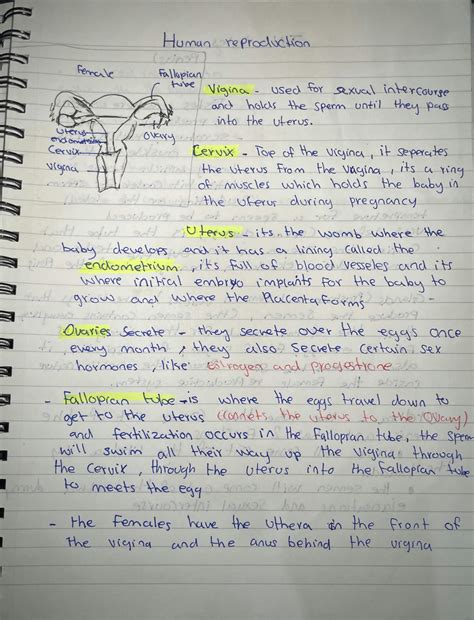 Human reproduction
Female
Fallopian
tube
uterus
endometrium
Cervix
Vigina
ovary
Vigina - used for sexual intercourse
and holds the sperm until they pass
into the uterus.
Cervix - Top of the vigina, it seperates
the uterus from the vagina, its a ring
of muscles which holds the baby in
the uterus during pregnancy
Uterus - its the womb where the
baby develops, and it has a lining called the
endometrium, its full of blood vesseles and its
where initial embryo implants for the baby to
grow and where the Placenta forms
Ovaries secrete - they secrete over the eggs once
every month, they also secrete certain sex
hormones, like estrogen and progestrone
- Fallopian tube - is where the eggs travel down to
get to the uterus (connets the uterus to the ovary)
and fertilization occurs in the Fallopian tube, the sperm
will swim all their way up the vigina through
the Cervix, through the uterus into the Fallopian tube
to meets the egg
- the females have the uthera in the front of
the vigina and the anus behind the vrgina